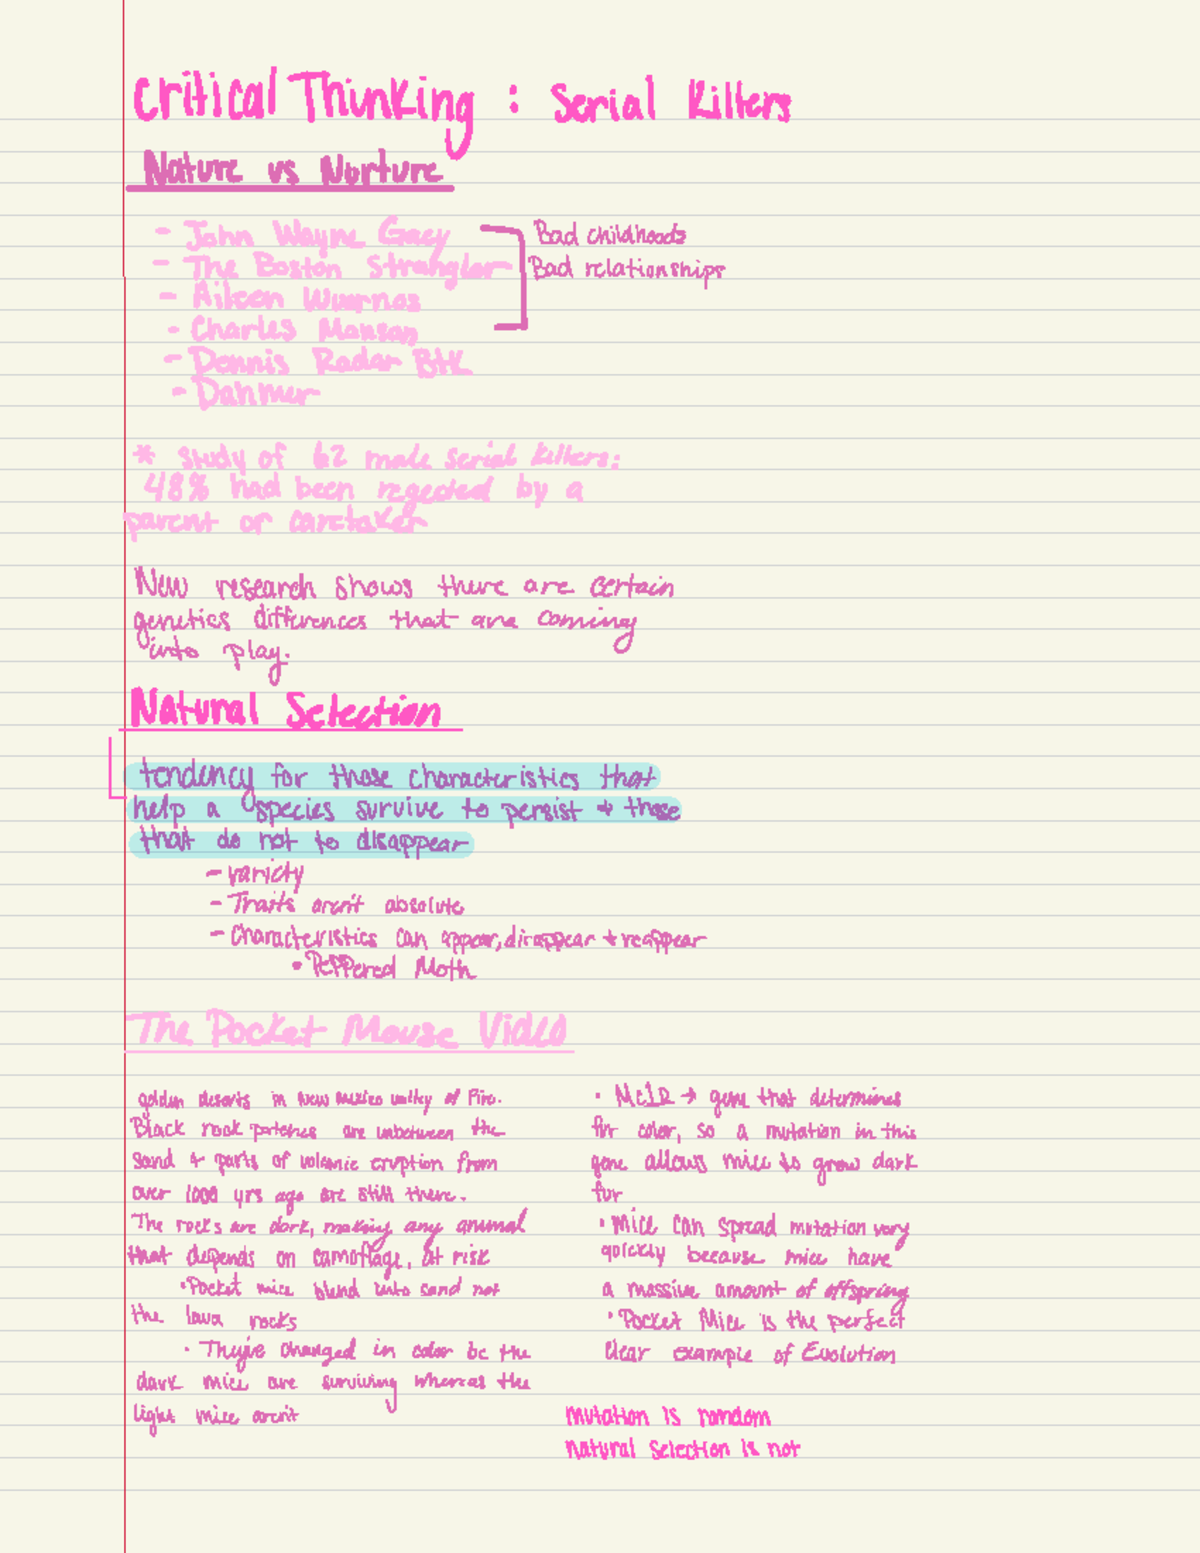 Critical Thinking : Serial Killers
Nature vs Nurture
- John Wayne Gacy
Bad childhoods
- The Boston Strangler
Bad relationships
- Aileen Wuornos
- Charles Manson
- Dennis Radar BTK
- Dahmer
* Study of 62 male serial killers:
48% had been regected by a
parent or caretaker
New research shows there are certain
genetics differences that are coming
into play.
Natural Selection
tendency for those characteristics that
help a species survive to persist + those
that do not to disappear
- variety
- Traits aren't absolute
- Characteristics can appear, disappear + reappear
• Peppered Moth
The Pocket Mouse Video
golden deserts in New Mexico valley of Fire.
Black rock patches are inbetween the
sand + parts of volcanic eruption from
over 1000 yrs ago are still there.
The rocks are dark, making any animal
that depends on camoflage, at risk
• Pocket mice blend into sand not
the lava rocks
• They've changed in color bc the
dark mice are surviving whereas the
light mice aren't
• Mc1R → gene that determines
fur color, so a mutation in this
gene allows mice to grow dark
fur
• Mice can spread mutation very
quickly because mice have
a massive amount of offspring
• Pocket Mice is the perfect
clear example of Evolution
mutation is random
natural selection is not